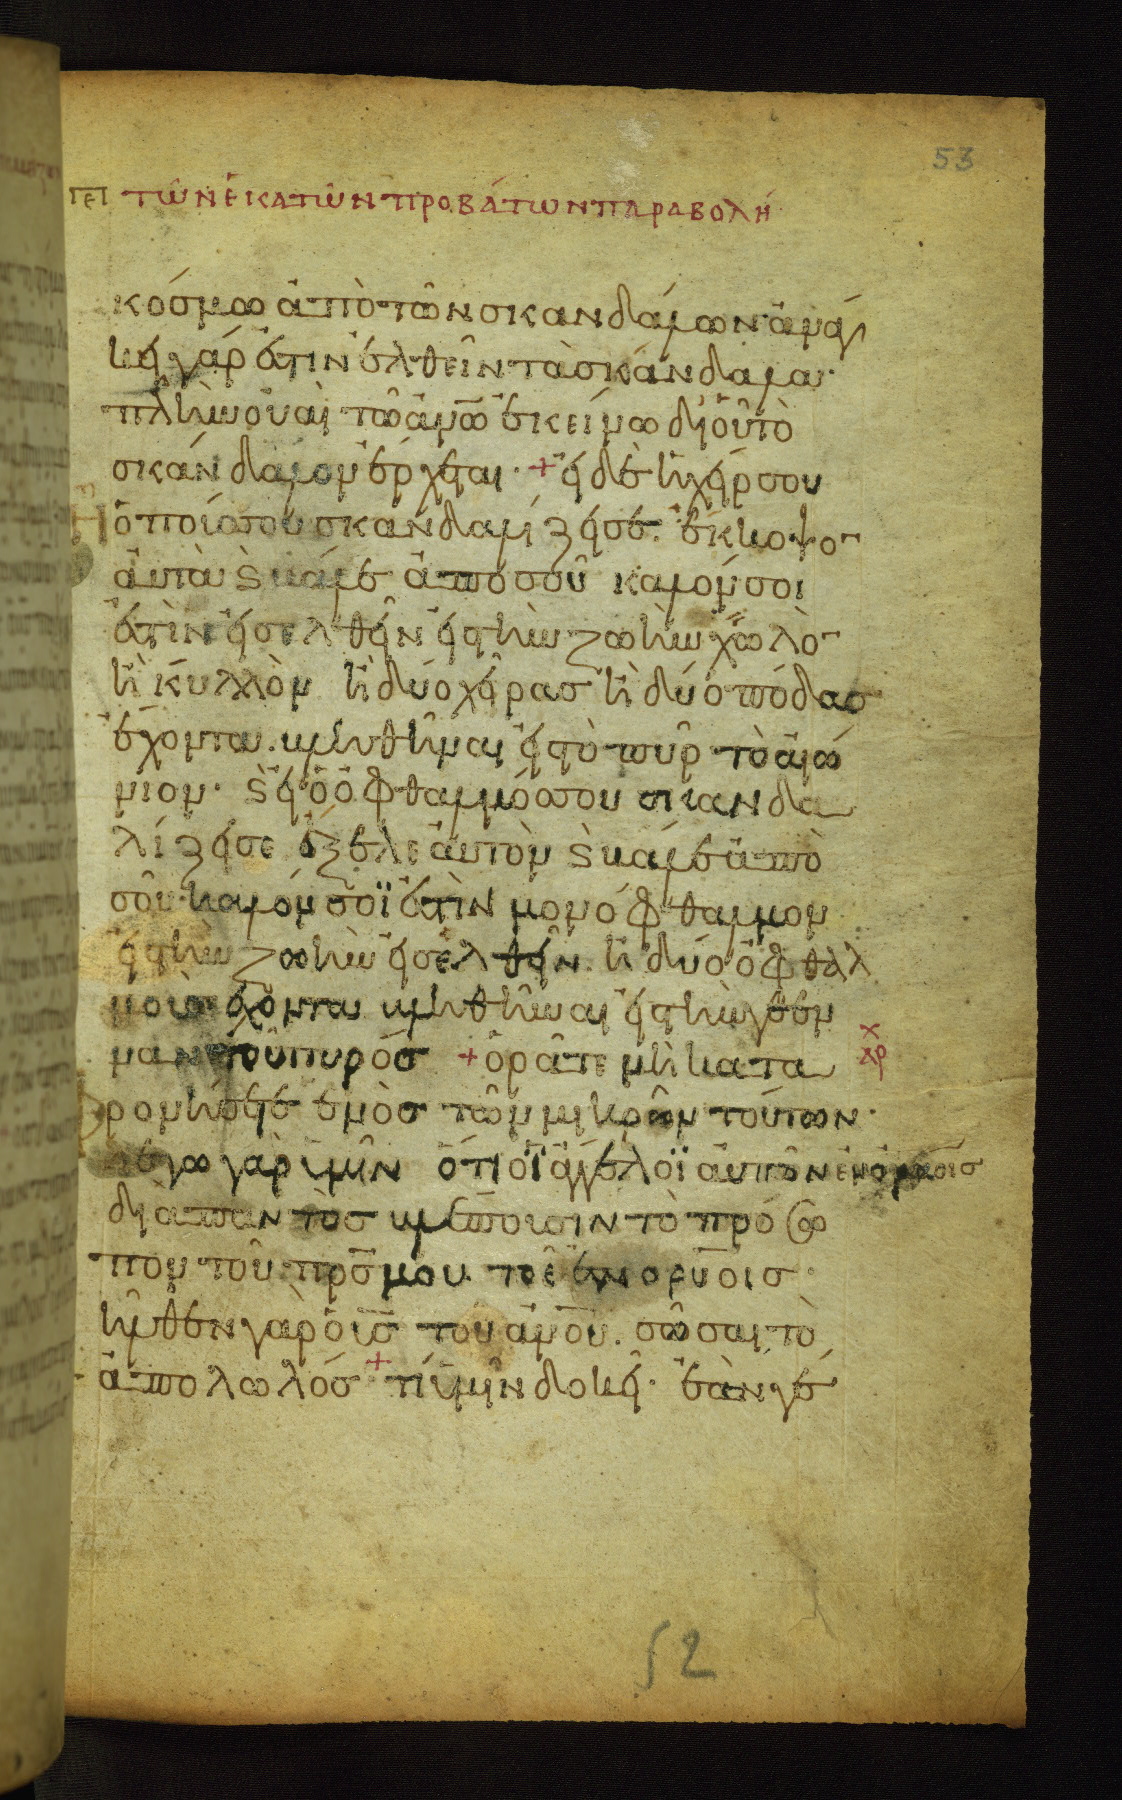 53
πεὶ τῶν ἑκατῶν προβάτων παραβολή
κόσμω ἀπὸ τῶν σκανδάλων· ἀνάγ
κη γάρ ἐστιν ἐλθεῖν τὰ σκάνδαλα·
πλὴν οὐαὶ τῶ ἀνω̅ ἐκείνω δι' οὗ τὸ
σκάνδαλον ἔρχεται· + εἰ δὲ ἡ χείρ σου
ὁ ποῦσ σου σκανδαλίζει σε. ἔκκοψο̅
αὐτὰ ϗ βάλε ἀπὸ σοῦ καλόν σοι
ἐστὶν εἰσελθεῖν εἰς τὴν ζωὴν χωλὸ̅
ἢ κυλλὸν ἢ δύο χεῖρας ἢ δύο πόδας
ἔχοντα. βληθῆναι εἰς τὸ πῦρ τὸ αἰώ
νιον· ϗ εἰ ὁ ὀφθαλμόσ σου σκανδα
λίζει σε ἔξελε αὐτὸν ϗ βάλε ἀπὸ
σοῦ· καλόν σοϊ ἐστὶν μονόφθαλμον
εἰς τὴν ζωὴν εἰσελθεῖν. ἢ δύο ὀφθαλ
μοὺσ ἔχοντα βληθῆναι εἰς τὴν γέεν
ναν τοῦ πυρόσ + ὁρᾶτε μὴ κατα
χ
αρ
φρονήσητε ἑνὸσ τῶν μικρῶν τούτων·
λέγω γὰρ ὑμῖν ὅτι οἵ ἄγγελοϊ αὐτῶν ἐν οὐρανοῖσ
διαπαντὸσ βλέποισιν τὸ πρόσω
πον τοῦ πρ̅σ μου τοῦ ἐν ουρ̅οισ·
ἦλθεν γὰρ ὁ υσ̅ τοῦ ἀνο̅υ. σῶσαι τὸ
ἀπολωλόσ + τί ὑμῖν δοκεῖ· ἐὰν γέ
52